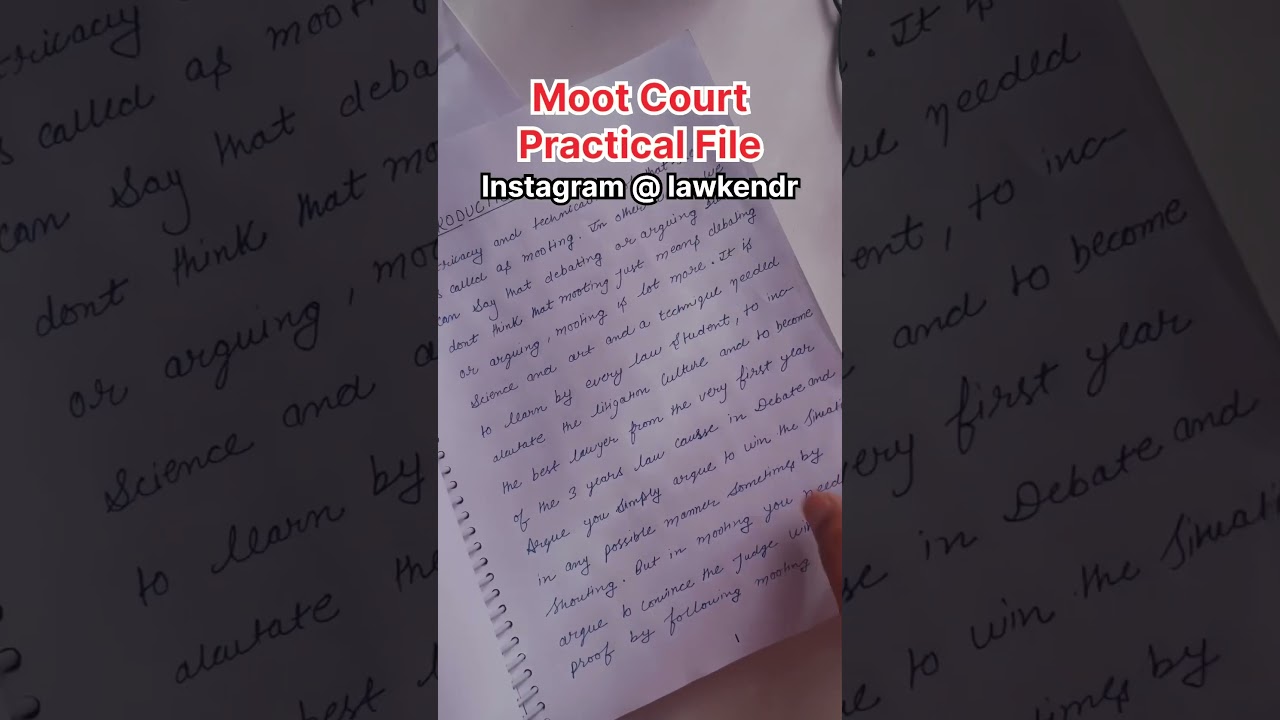 Moot Court
Practical File
Instagram @ lawkendr
RODUCTI
tricacy and technical
s called as mooting. In other we
can say that debating or arguing
dont think that mooting just means debating
or arguing, mooting is lot more. It is
Science and art and a technique needed
to learn by every law student, to inc-
alutate the litigation culture and to become
the best lawyer from the very first year
of the 3 years law causse in Debate and
Argue you simply argue to win the situati
in any possible manner sometimes by
Shouting. But in mooting you need
argue to convince the Judge wi
proof by following mooting
1